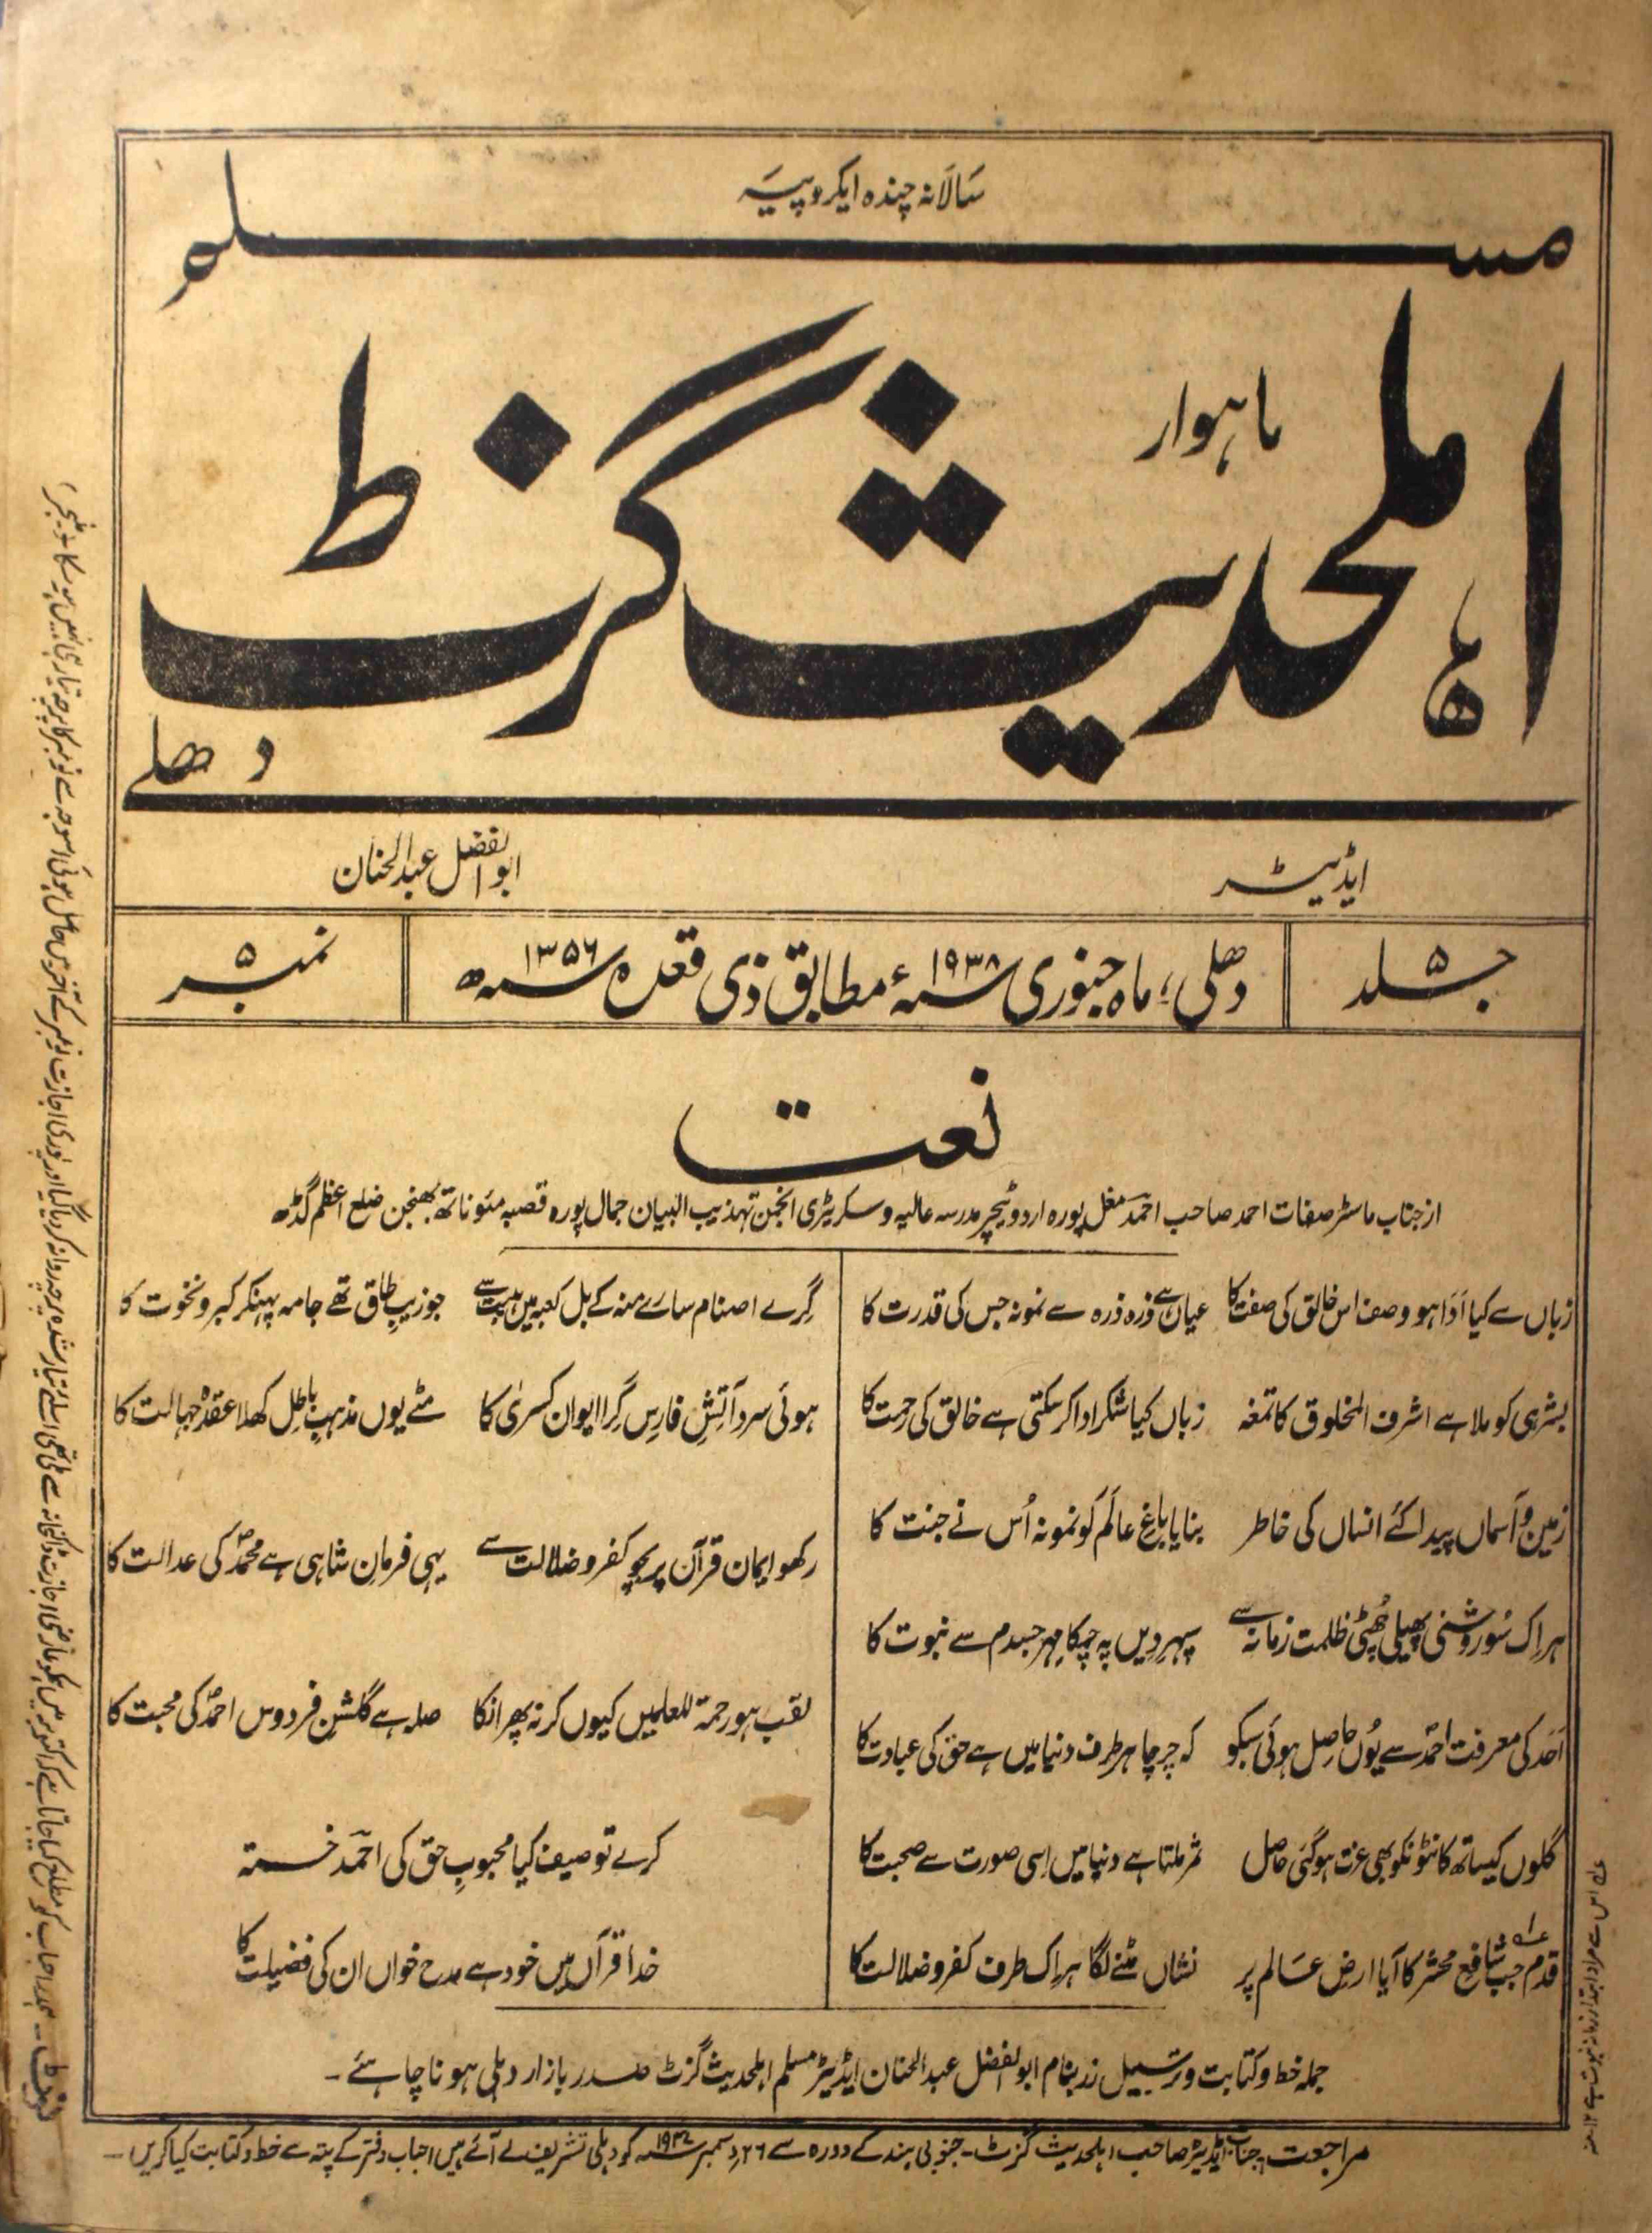 سالانہ چندہ ایکروپیہ
مسلم
ماہوار
اہلحدیث گزٹ
دھلی
ایڈیٹر
ابوالفضل عبدالحنان
جلد ۵
دھلی، ماہ جنوری ۱۹۳۸ سنہء مطابق ذی قعدہ ۱۳۵۶ سنہ ھ
نمبر ۵
نعت
ازجناب ماسٹر صفات احمد صاحب احمد مغل پورہ اردو ٹیچر مدرسہ عالیہ و سکریٹری انجمن تہذیب البیان جمال پورہ قصبہ مئو ناتھ بھنجن ضلع اعظم گڈھ
زباں سے کیا ادا ہو وصف اس خالق کی صفت کا عیاں ہے ذرہ ذرہ سے نمونہ جس کی قدرت کا
بشر ہی کو ملا ہے اشرف المخلوق کا تمغہ زباں کیا شکر ادا کر سکتی ہے خالق کی رحمت کا
زمین و آسماں پیدا کئے انساں کی خاطر بنایا باغِ عالم کو نمونہ اُس نے جنت کا
ہر اک سُو روشنی پھیلی چھٹی ظلمت زمانہ سے سپہرِ دیں پہ چمکا مہر جسدم سے نبوت کا
اَحد کی معرفت احمدؐ سے یُوں حاصِل ہوئی سبکو کہ چرچا ہر طرف دنیا میں ہے حق کی عبادت کا
گلوں کیساتھ کانٹونکو بھی عزت ہوگئی حاصل ثمر ملتا ہے دنیا میں اِسی صورت سے صحبت کا
قدم جب شافع محشر کا آیا ارضِ عالم پر نشاں مٹنے لگا ہر اک طرف کفر و ضلالت کا
گرے اصنام سارے منہ کے بل کعبہ میں ہیبت سے جو زیبِ طاق تھے جامہ پہنکر کبر و نخوت کا
ہوئی سرد آتشِ فارس گرا ایوان کسریٰ کا مٹے یوں مذہبِ باطل کھلا عقدہ جہالت کا
رکھو ایمان قرآن پر بچو کفر و ضلالت سے یہی فرمانِ شاہی ہے محمدؐ کی عدالت کا
لقب ہو رحمۃ للعلمیں کیوں کر نہ پھر انکا صلہ ہے گلشنِ فردوس احمدؐ کی محبت کا
کرے توصیف کیا محبوبِ حق کی احمد خستہ
خدا قرآں میں خود ہے مدح خواں ان کی فضیلت کا
جملہ خط و کتابت و ترسیل زر بنام ابوالفضل عبدالحنان ایڈیٹر مسلم اہلحدیث گزٹ صدر بازار دہلی ہونا چاہئے۔
مراجعت، جناب ایڈیٹر صاحب اہلحدیث گزٹ۔ جنوبی ہند کے دورہ سے ۲۶ دسمبر سنہ کو دہلی تشریف لے آئے ہیں احباب دفتر کے پتہ سے خط و کتابت کیا کریں۔
نوٹ